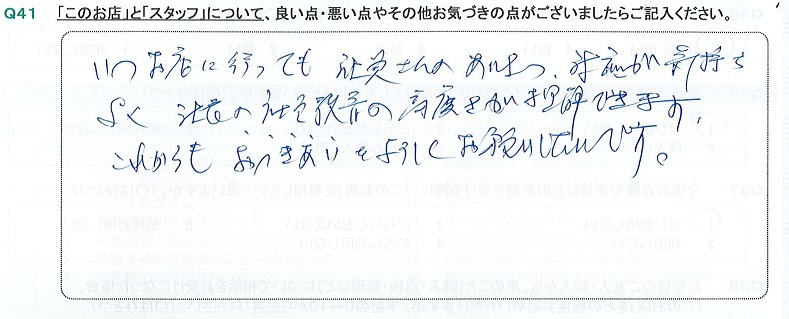 Q41 「このお店」と「スタッフ」について、良い点・悪い点やその他お気づきの点がございましたらご記入ください。
いつお店に行っても 社員さんの あいさつ、対応が 気持ち
よく 社長の社員教育の高度さが理解できます。
これからも おつきあいをよろしくお願いしたいです。